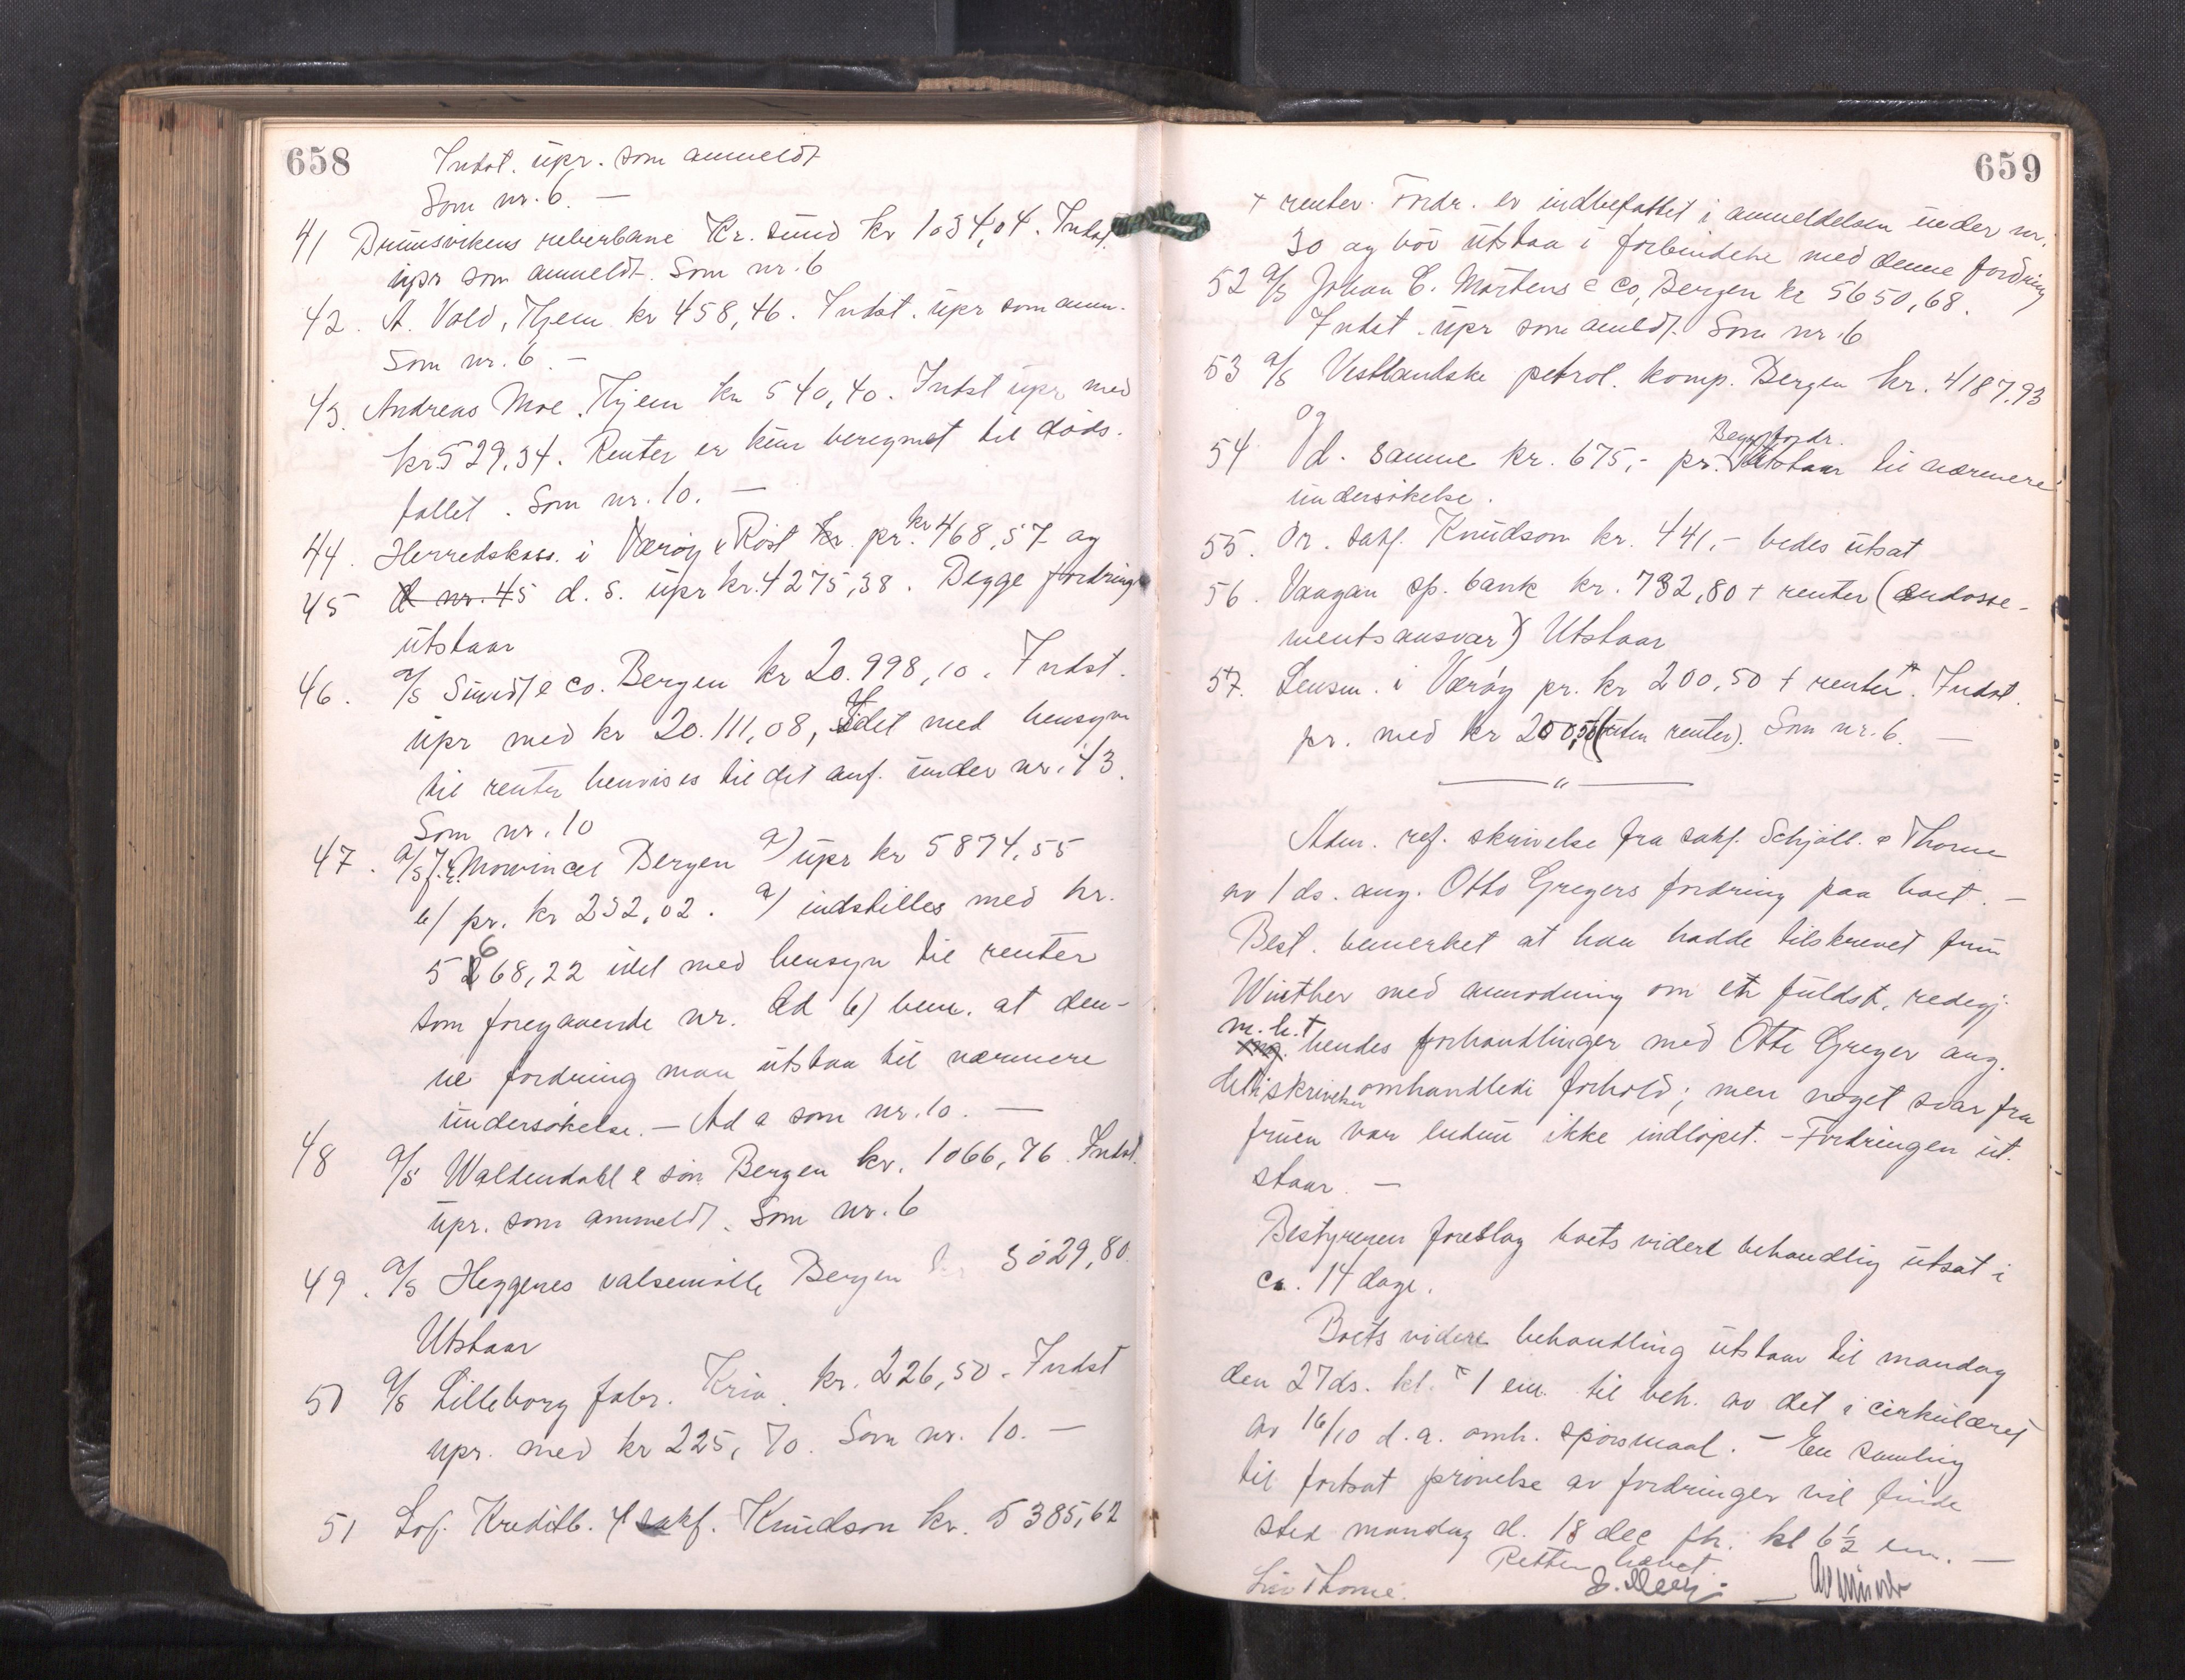 658
Indst. upr. som anmeldt
Som nr. 6. —
41 Drumsvikens reberbane Kr. sund kr 1034,04. Indst.
upr som anmeldt. Som nr. 6
42. A. Vold, Hjem kr 458,46. Indst. upr som anm.
Som nr. 6. —
43. Andreas Moe, Hjem kr 540,40. Indst upr med
kr 529,34. Renter er kun beregnet til døds-
fallet. Som nr. 10. —
44. Herredskass. i Værøy & Røst pr. kr 468,57 og
45 d nr. 45 d. s. upr kr. 4275,38. Begge fordringer
utstaar
46. a/s Sundt & co. Bergen kr 20.998,10. Indst.
upr med kr 20.111,08, Idet med hensyn
til renter henvises til det anf. under nr. 43.
Som nr. 10
47. a/s Mowinckel Bergen a) upr kr 5874,55
b) pr. kr 232,02. a) indstilles med kr.
5668,22 idet med hensyn til renter
som foregaaende nr. Ad b) bem. at den-
ne fordring maa utstaa til nærmere
undersøkelse. — Ad a som nr. 10. —
48 a/s Waldendahl & søn Bergen kr. 1066,76. Indst.
upr. som anmeldt. Som nr. 6
49. a/s Heggenes valsemølle Bergen kr 3029,80.
Utstaar
50 a/s Lilleborg fabr. Kria. kr. 226,50. Indst
upr. med kr 225,70. Som nr. 10. —
51 Lof. Kreditb. v/ sakf. Knudson kr. 5385,62
659
+ renter. Fordr. er indbefattet i anmeldelsen under nr.
30 og bør utstaa i forbindelse med denne fordring
52 a/s Johan C. Martens & Co, Bergen kr 5650,68.
Indst. upr som anmeldt. Som nr. 6
53 a/s Vestlandske petrol. komp. Bergen kr. 4187,93
og
54 d. samme kr. 675,- pr. Begge fordr. Utstaar til nærmere
undersøkelse.
55. Or. sakf. Knudson kr. 441,- bedes utsat
56. Vaagan sp. bank kr. 732,80 + renter (endosse-
mentsansvar) Utstaar
57. Lensm. i Værøy pr. kr 200,50 + renter. Indst.
pr. med kr 200,50 (uten renter). Som nr. 6. —
— " —
Adm. ref. skrivelse fra sakf. Schjøll. & Thorne
av 1 ds. ang. Otto Gregers fordring paa boet. —
Best. bemerket at han hadde tilskrevet fru
Winther med anmodning om en fuldst. redegj.
m. h. t hendes forhandlinger med Otto Greger ang.
det i skrivelsen omhandlede forhold; men noget svar fra
fruen var endnu ikke indløpet. — Fordringen ut-
staar. —
Bestyreren foreslog boets videre behandling utsat i
ca. 14 dage.
Boets videre behandling utstaar til mandag
den 27 ds. kl. 1 em. til beh. av det i cirkulæret
av 16/10 d. a. omh. spørsmaal. — En samling
til fortsat prøvelse av fordringer vil finde
sted mandag d. 18 dec. kl 6½ em. —
Retten hævet.